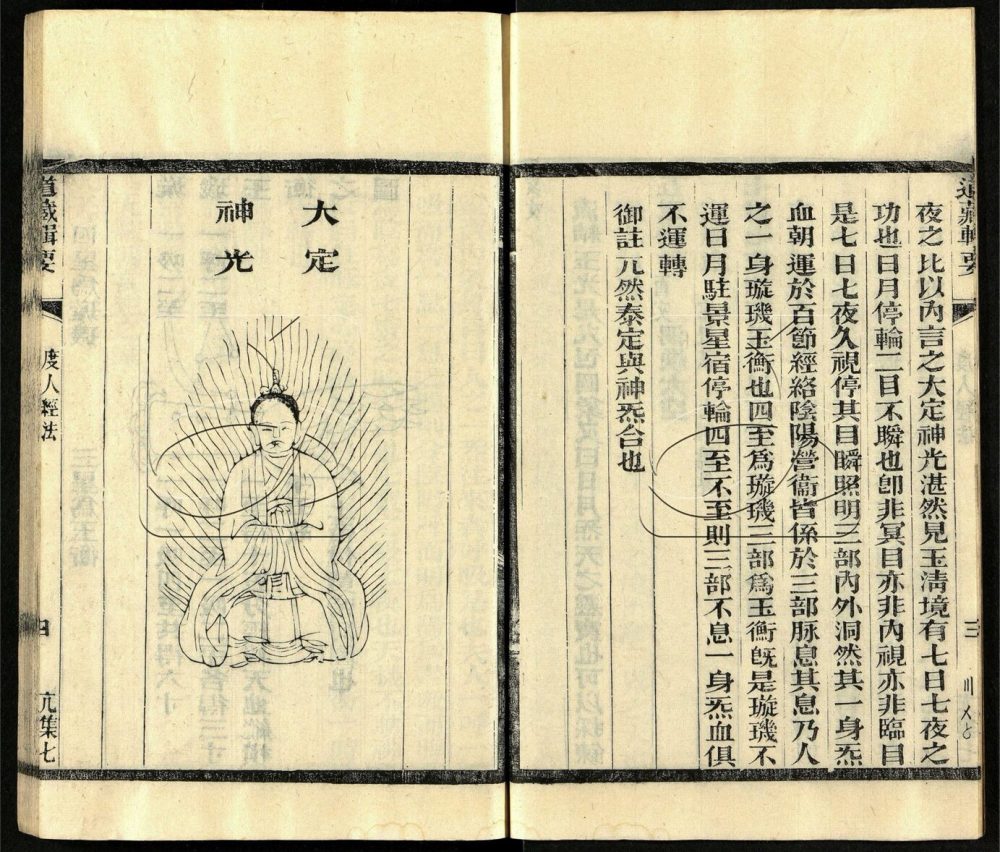 道藏輯要
三
夜之比以內言之大定神光湛然見玉淸境有七日七夜之
功也日月停輪二目不瞬也卽非冥目亦非內視亦非臨目
是七日七夜久視停其目瞬照明三部內外洞然其一身炁
血朝運於百節經絡陰陽營衞皆係於三部脉息其息乃人
之一身璇璣玉衡也四至爲璇璣三部爲玉衡旣是璇璣不
運日月駐景星宿停輪四至不至則三部不息一身炁血俱
不運轉
御註兀然泰定與神炁合也
大定
神光
道藏輯要
度人經法
四
亢集七